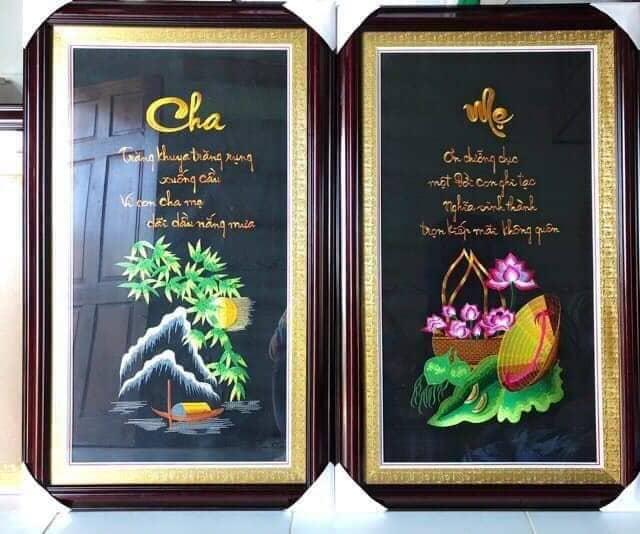 Cha
Trăng khuya trăng rụng
xuống cầu
Vì con cha mẹ
dãi dầu nắng mưa
Mẹ
Ơn chíñg dục
một đời con ghi tạc
Nghĩa sinh thành
trọn kiếp mãi không quên